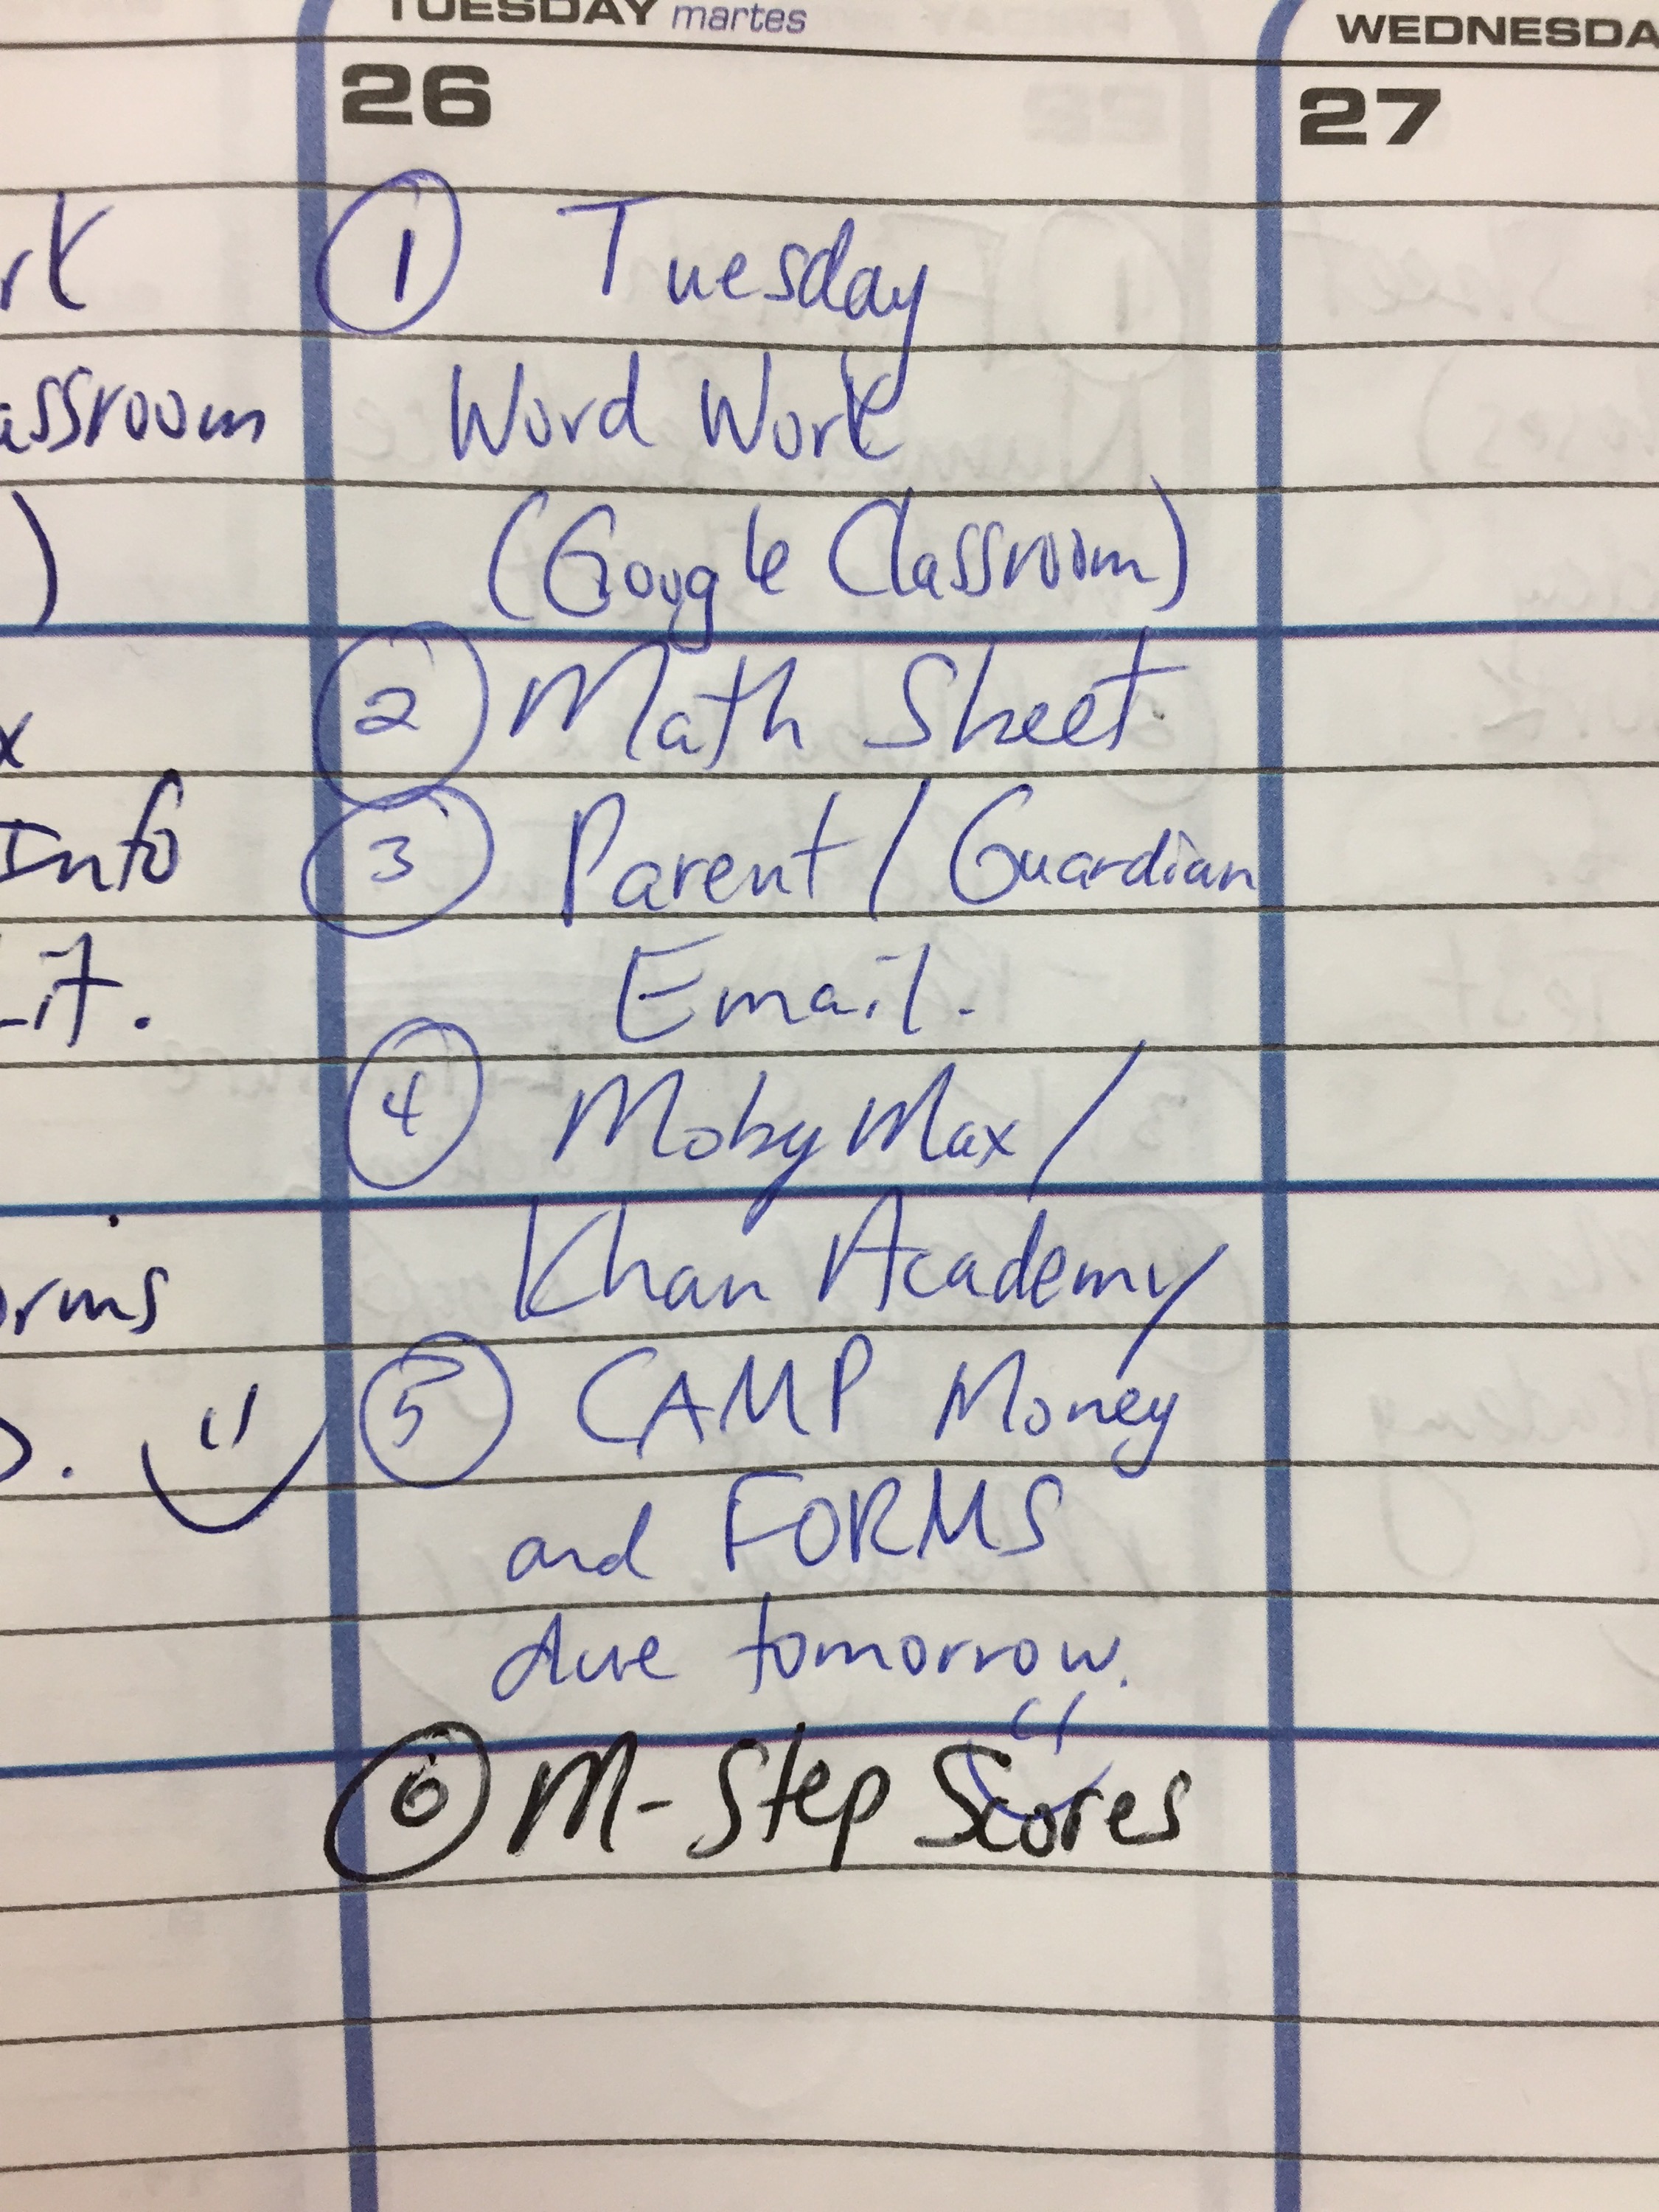 TUESDAY martes
26
① Tuesday
Word Work
(Google Classroom)
② Math Sheet
③ Parent / Guardian
Email.
④ Moby Max /
Khan Academy
⑤ CAMP Money
and FORMS
due tomorrow.
⑥ M-Step Scores
WEDNESDA
27
rk
assroom
)
x
Info
Lit.
orms